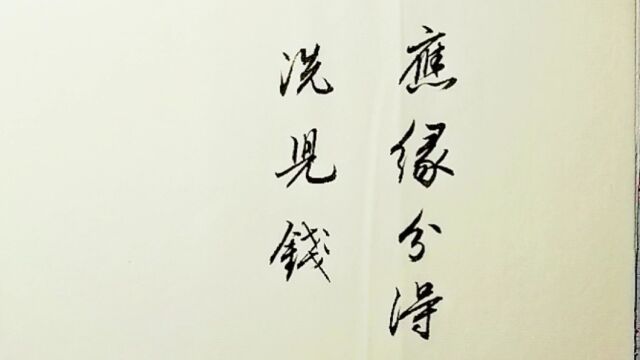 應緣分得
洗兒錢